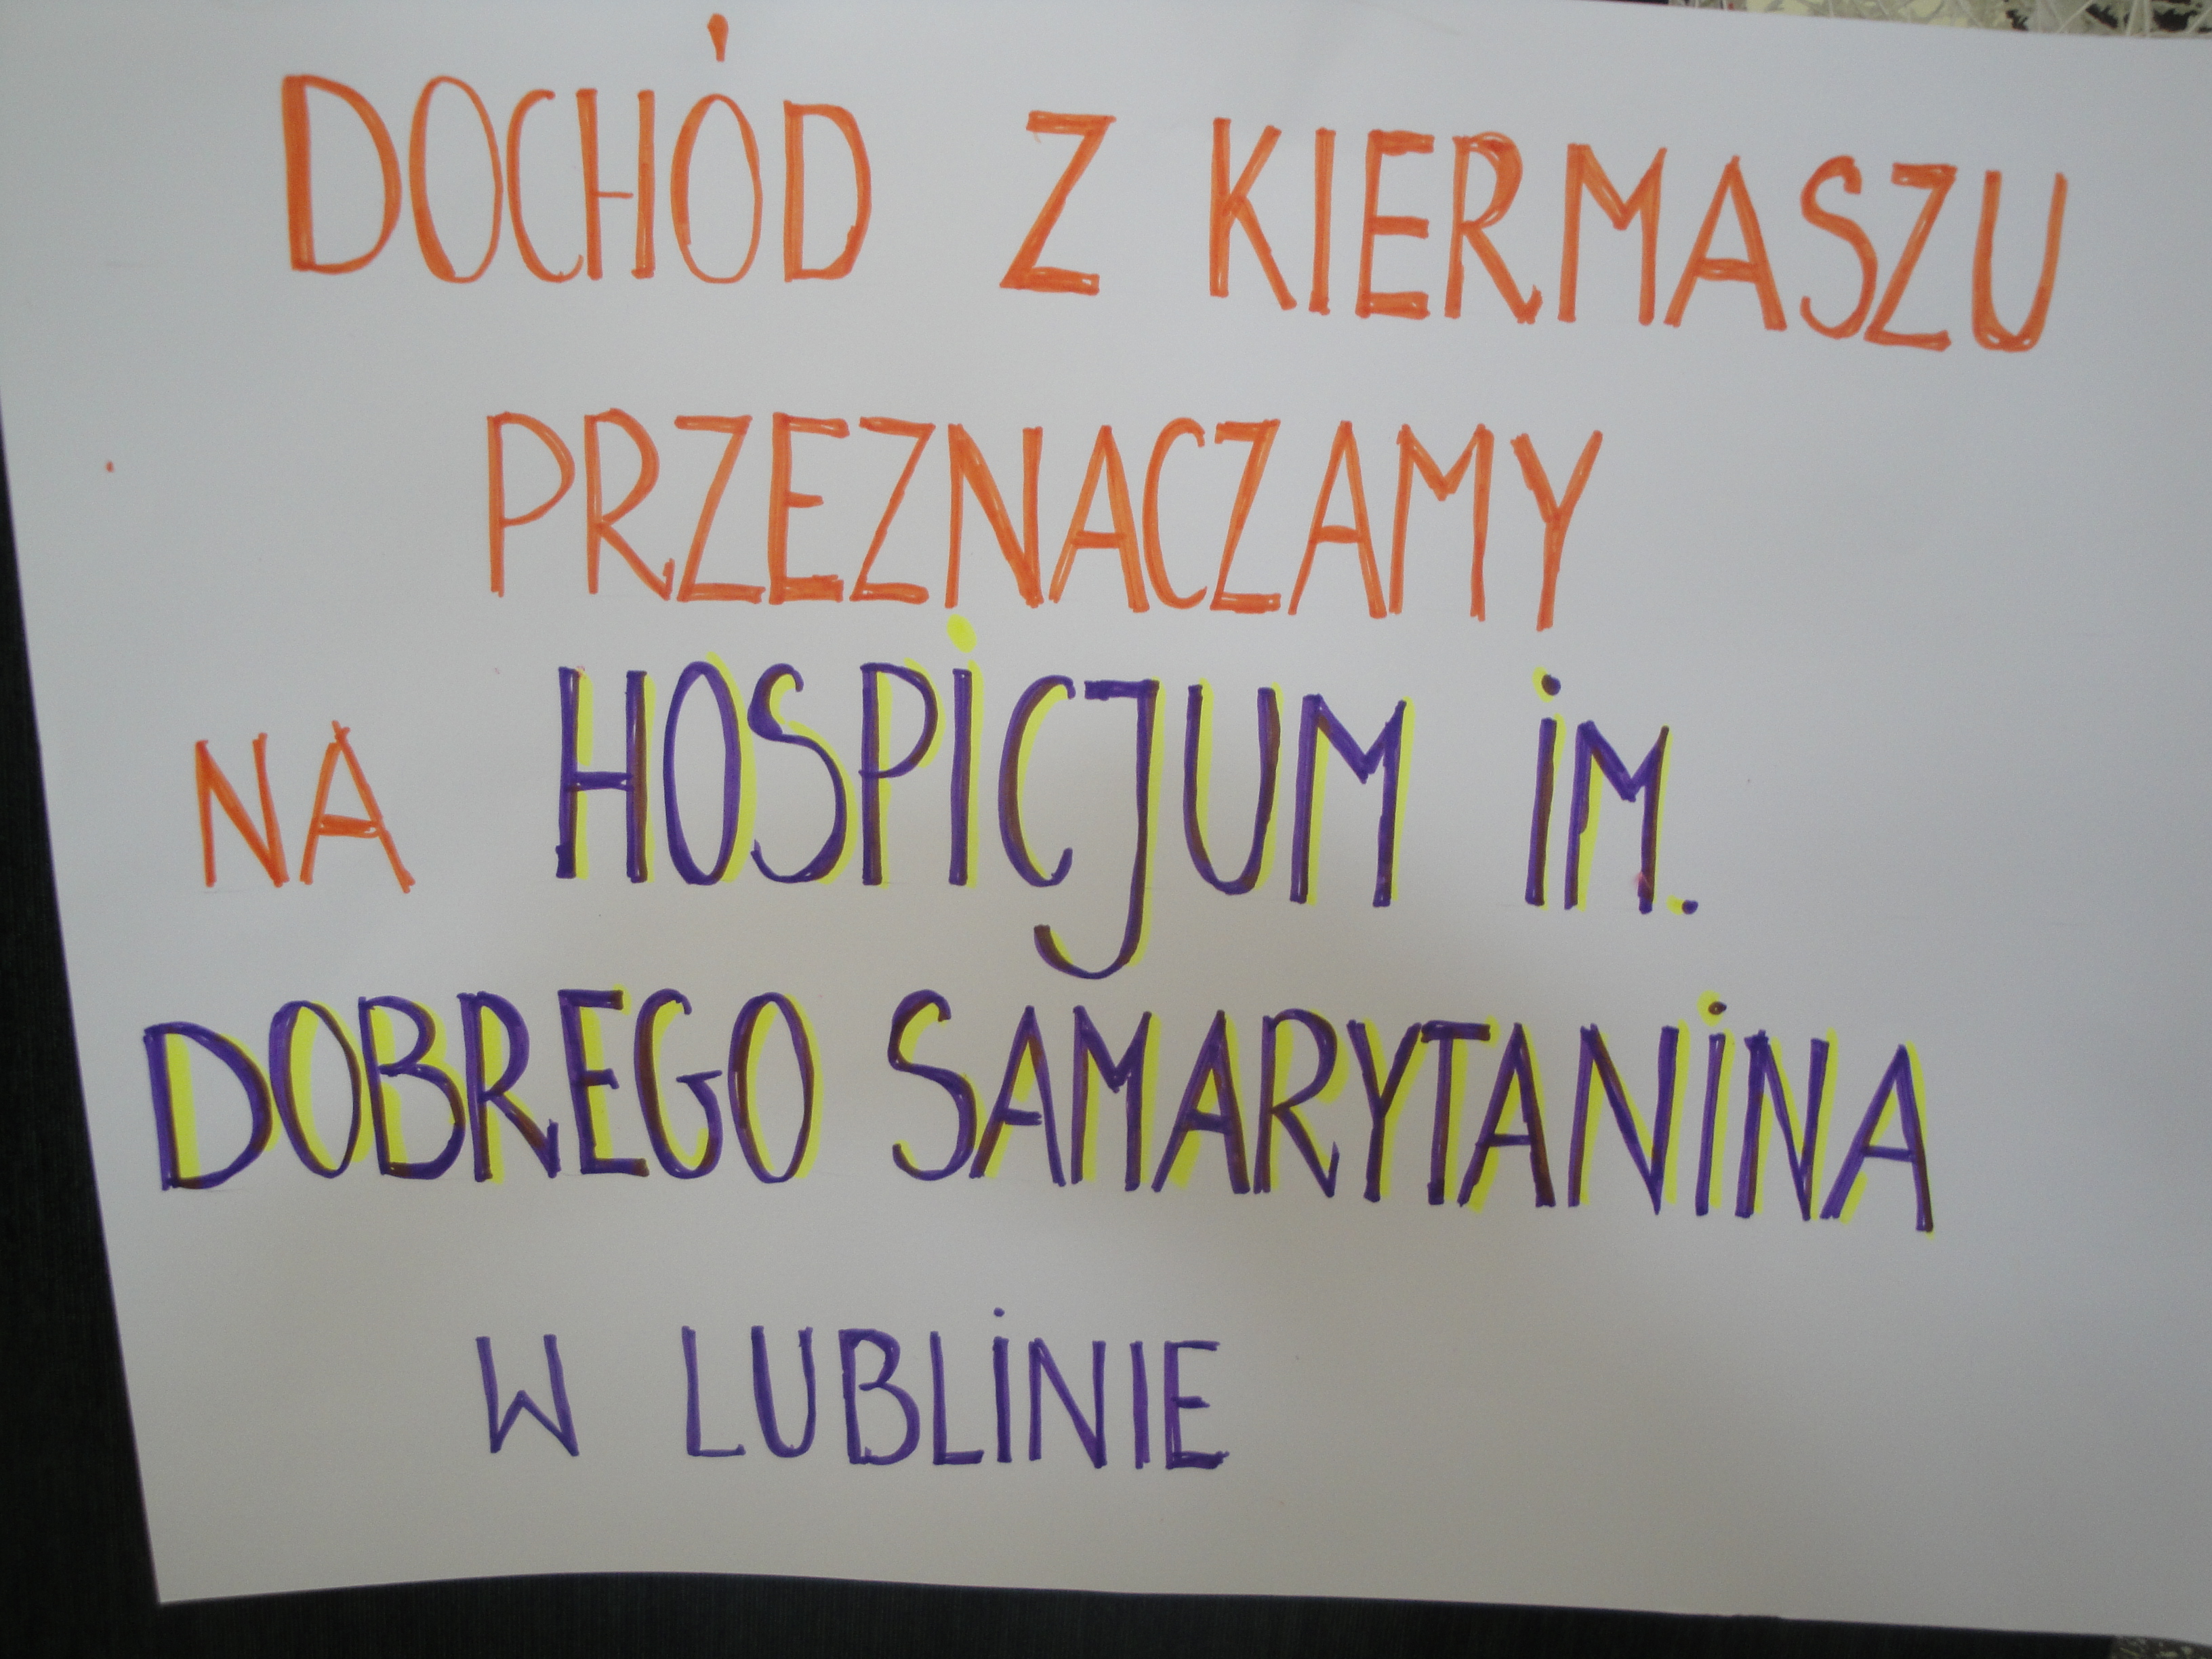 DOCHÓD Z KIERMASZU
PRZEZNACZAMY
NA HOSPICJUM IM.
DOBREGO SAMARYTANINA
W LUBLINIE